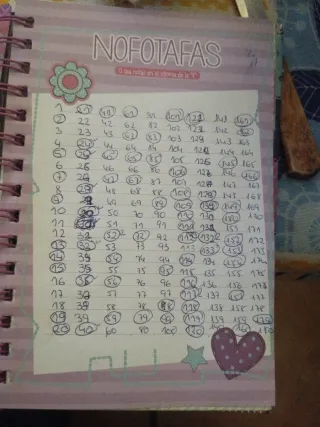 NOFOTAFAS
O sea notas en el idioma de la "F"
1 21 41 61 81 101 121 141 161
2 22 42 62 82 102 122 142 162
3 23 43 63 83 103 123 143 163
4 24 44 64 84 104 124 144 164
5 25 45 65 85 105 125 145 165
6 26 46 66 86 106 126 146 166
7 27 47 67 87 107 127 147 167
8 28 48 68 88 108 128 148 168
9 29 49 69 89 109 129 149 169
10 30 50 70 90 110 130 150 170
11 31 51 71 91 111 131 151 171
12 32 52 72 92 112 132 152 172
13 33 53 73 93 113 133 153 173
14 34 54 74 94 114 134 154 174
15 35 55 75 95 115 135 155 175
16 36 56 76 96 116 136 156 176
17 37 57 77 97 117 137 157 177
18 38 58 78 98 118 138 158 178
19 39 59 79 99 119 139 159 179
20 40 60 80 100 120 140 160 180